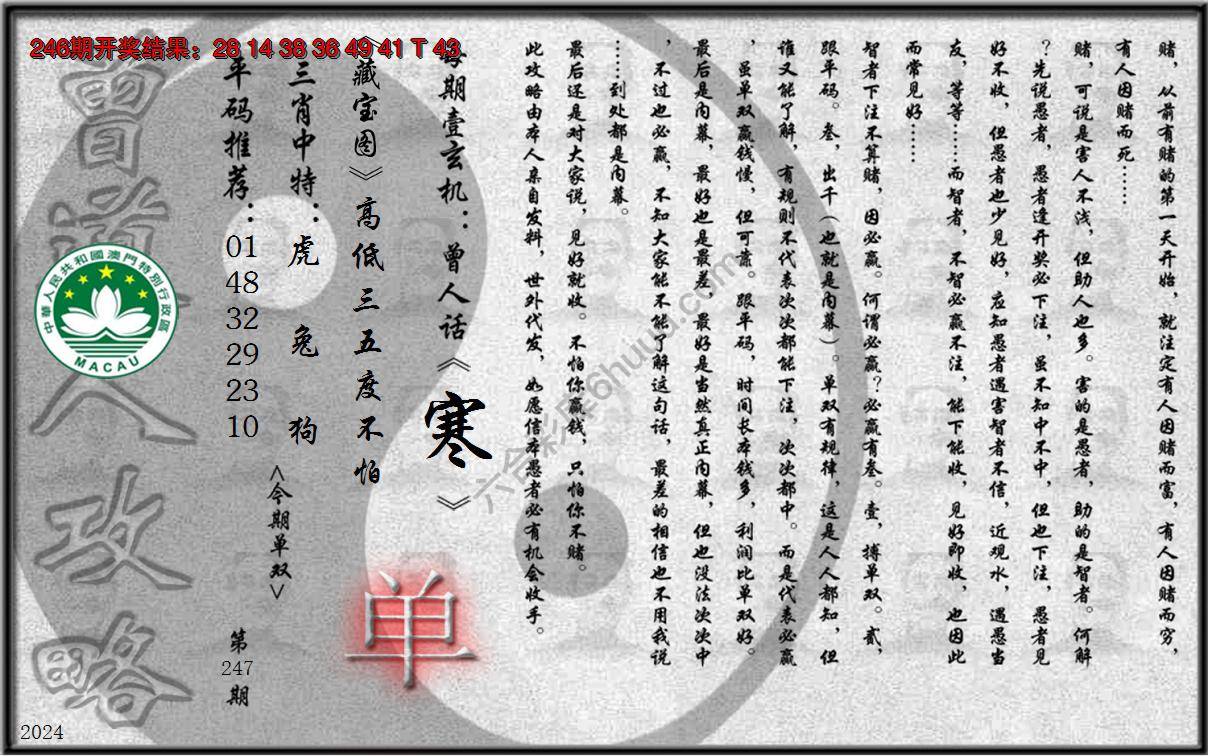 246期开奖结果：28 14 38 36 49 41 T 43
赌，从前有赌的第一天开始，就注定有人因赌而富，有人因赌而穷，
有人因赌而死……
赌，可说是害人不浅，但助人也多。害的是愚者，助的是智者。何解
？先说愚者，愚者逢开奖必下注，虽不知中不中，但也下注，愚者见
好不收，但愚者也少见好，应知愚者遇害智者不信，近观水，遇愚当
友，等等……而智者，不智必赢不注，能下能收，见好即收，也因此
而常见好……
智者下注不算赌，因必赢。何谓必赢？必赢有叁。壹，搏单双。贰，
跟平码。叁，出千（也就是内幕）。单双有规律，这是人人都知，但
谁又能了解，有规则不代表次次都能下注，次次都中。而是代表必赢
，虽单双赢钱慢，但可靠。跟平码，时间长本钱多，利润比单双好。
最后是内幕，最好也是最差，最好是当然真正内幕，但也没法次次中
，不过也必赢，不知大家能不能了解这句话，最差的相信也不用我说
……到处都是内幕。
最后还是对大家说，见好就收。不怕你赢钱，只怕你不赌。
此攻略由本人亲自发料，世外代发，如愿信本愚者必有机会收手。
每期壹玄机：曾人话《寒》
《藏宝图》高低三五度不怕
单
三肖中特：虎 兔 狗
<今期单双>
平码推荐：
01
48
32
29
23
10
第
247
期
曾道人攻略
中華人民共和國澳門特別行政區
MACAU
2024